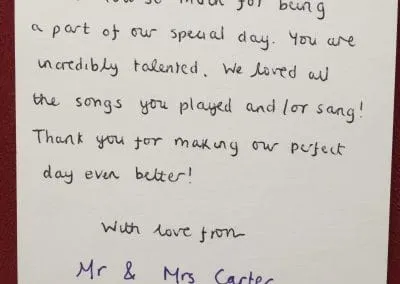 you so much for being
a part of our special day. You are
incredibly talented. We loved all
the songs you played and/or sang!
Thank you for making our perfect
day even better!
With love from
Mr & Mrs Carter